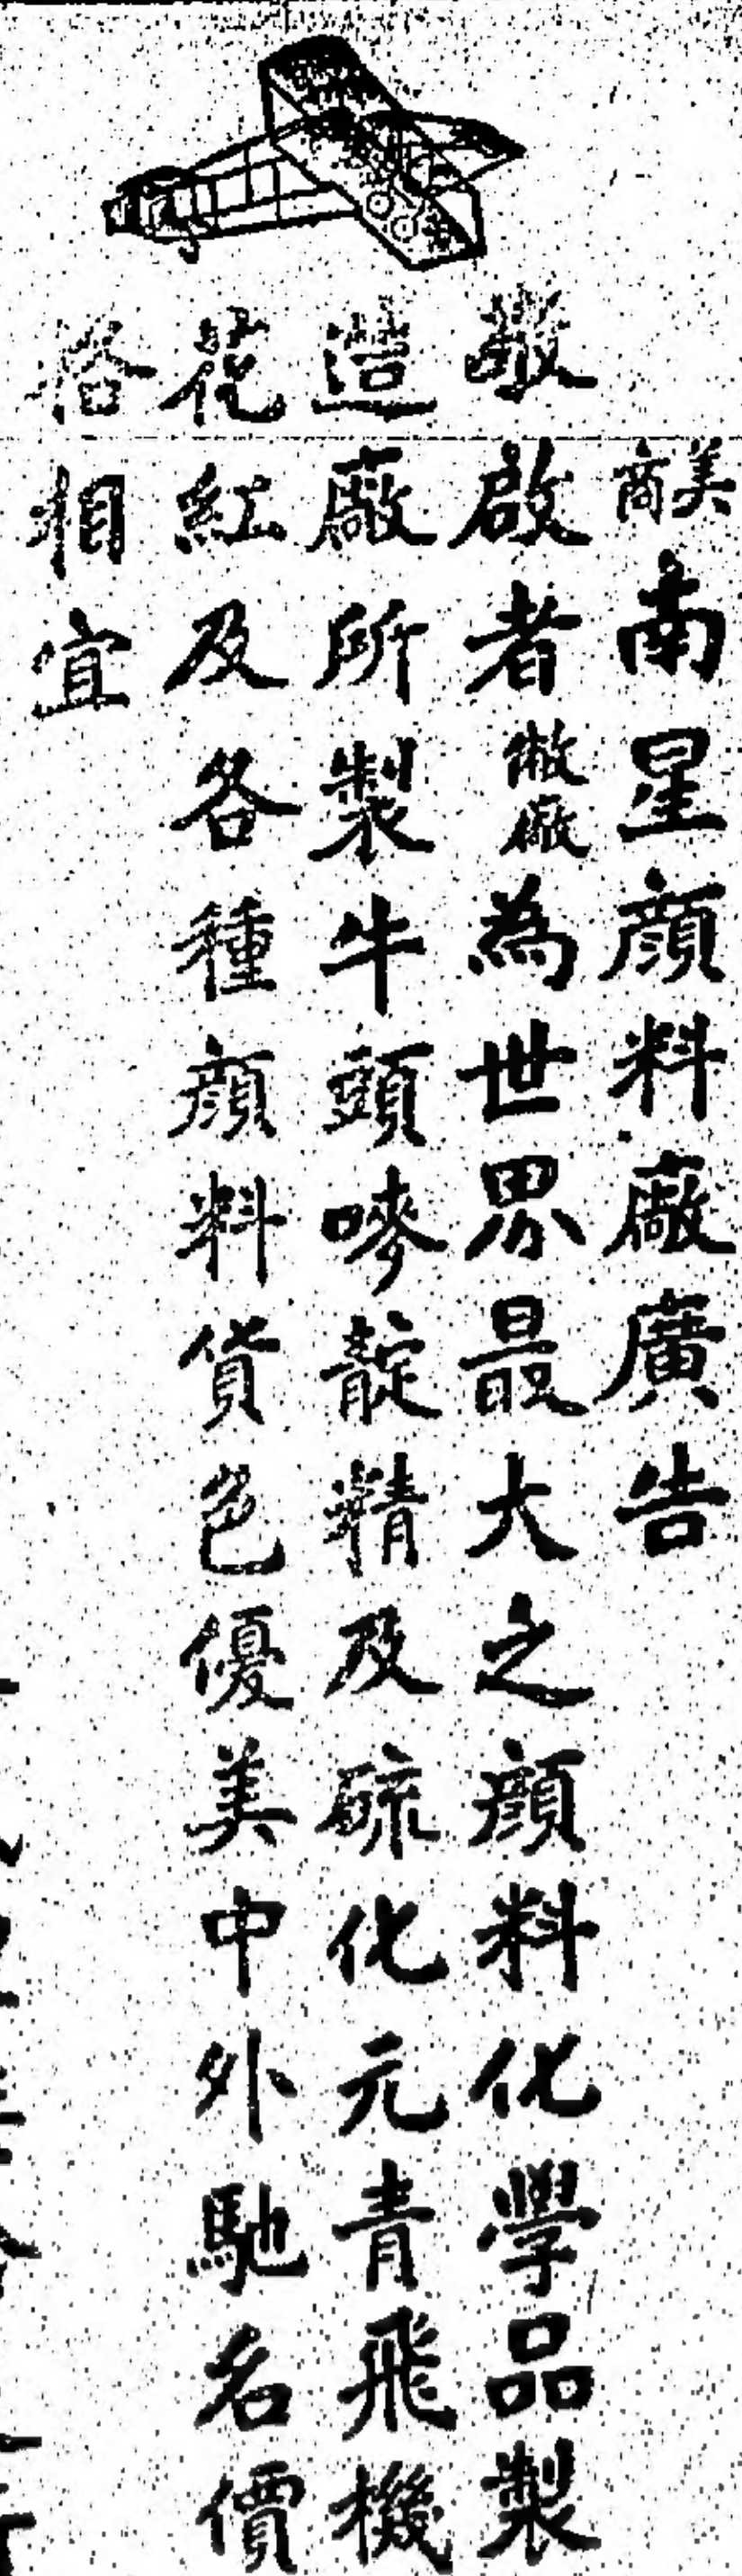 美商南星顔料廠廣告
敬啟者敝廠為世界最大之顔料化學品製
造廠所製牛頭嘜靛精及硫化元青飛機
花紅及各種顔料貨色優美中外馳名價
格相宜